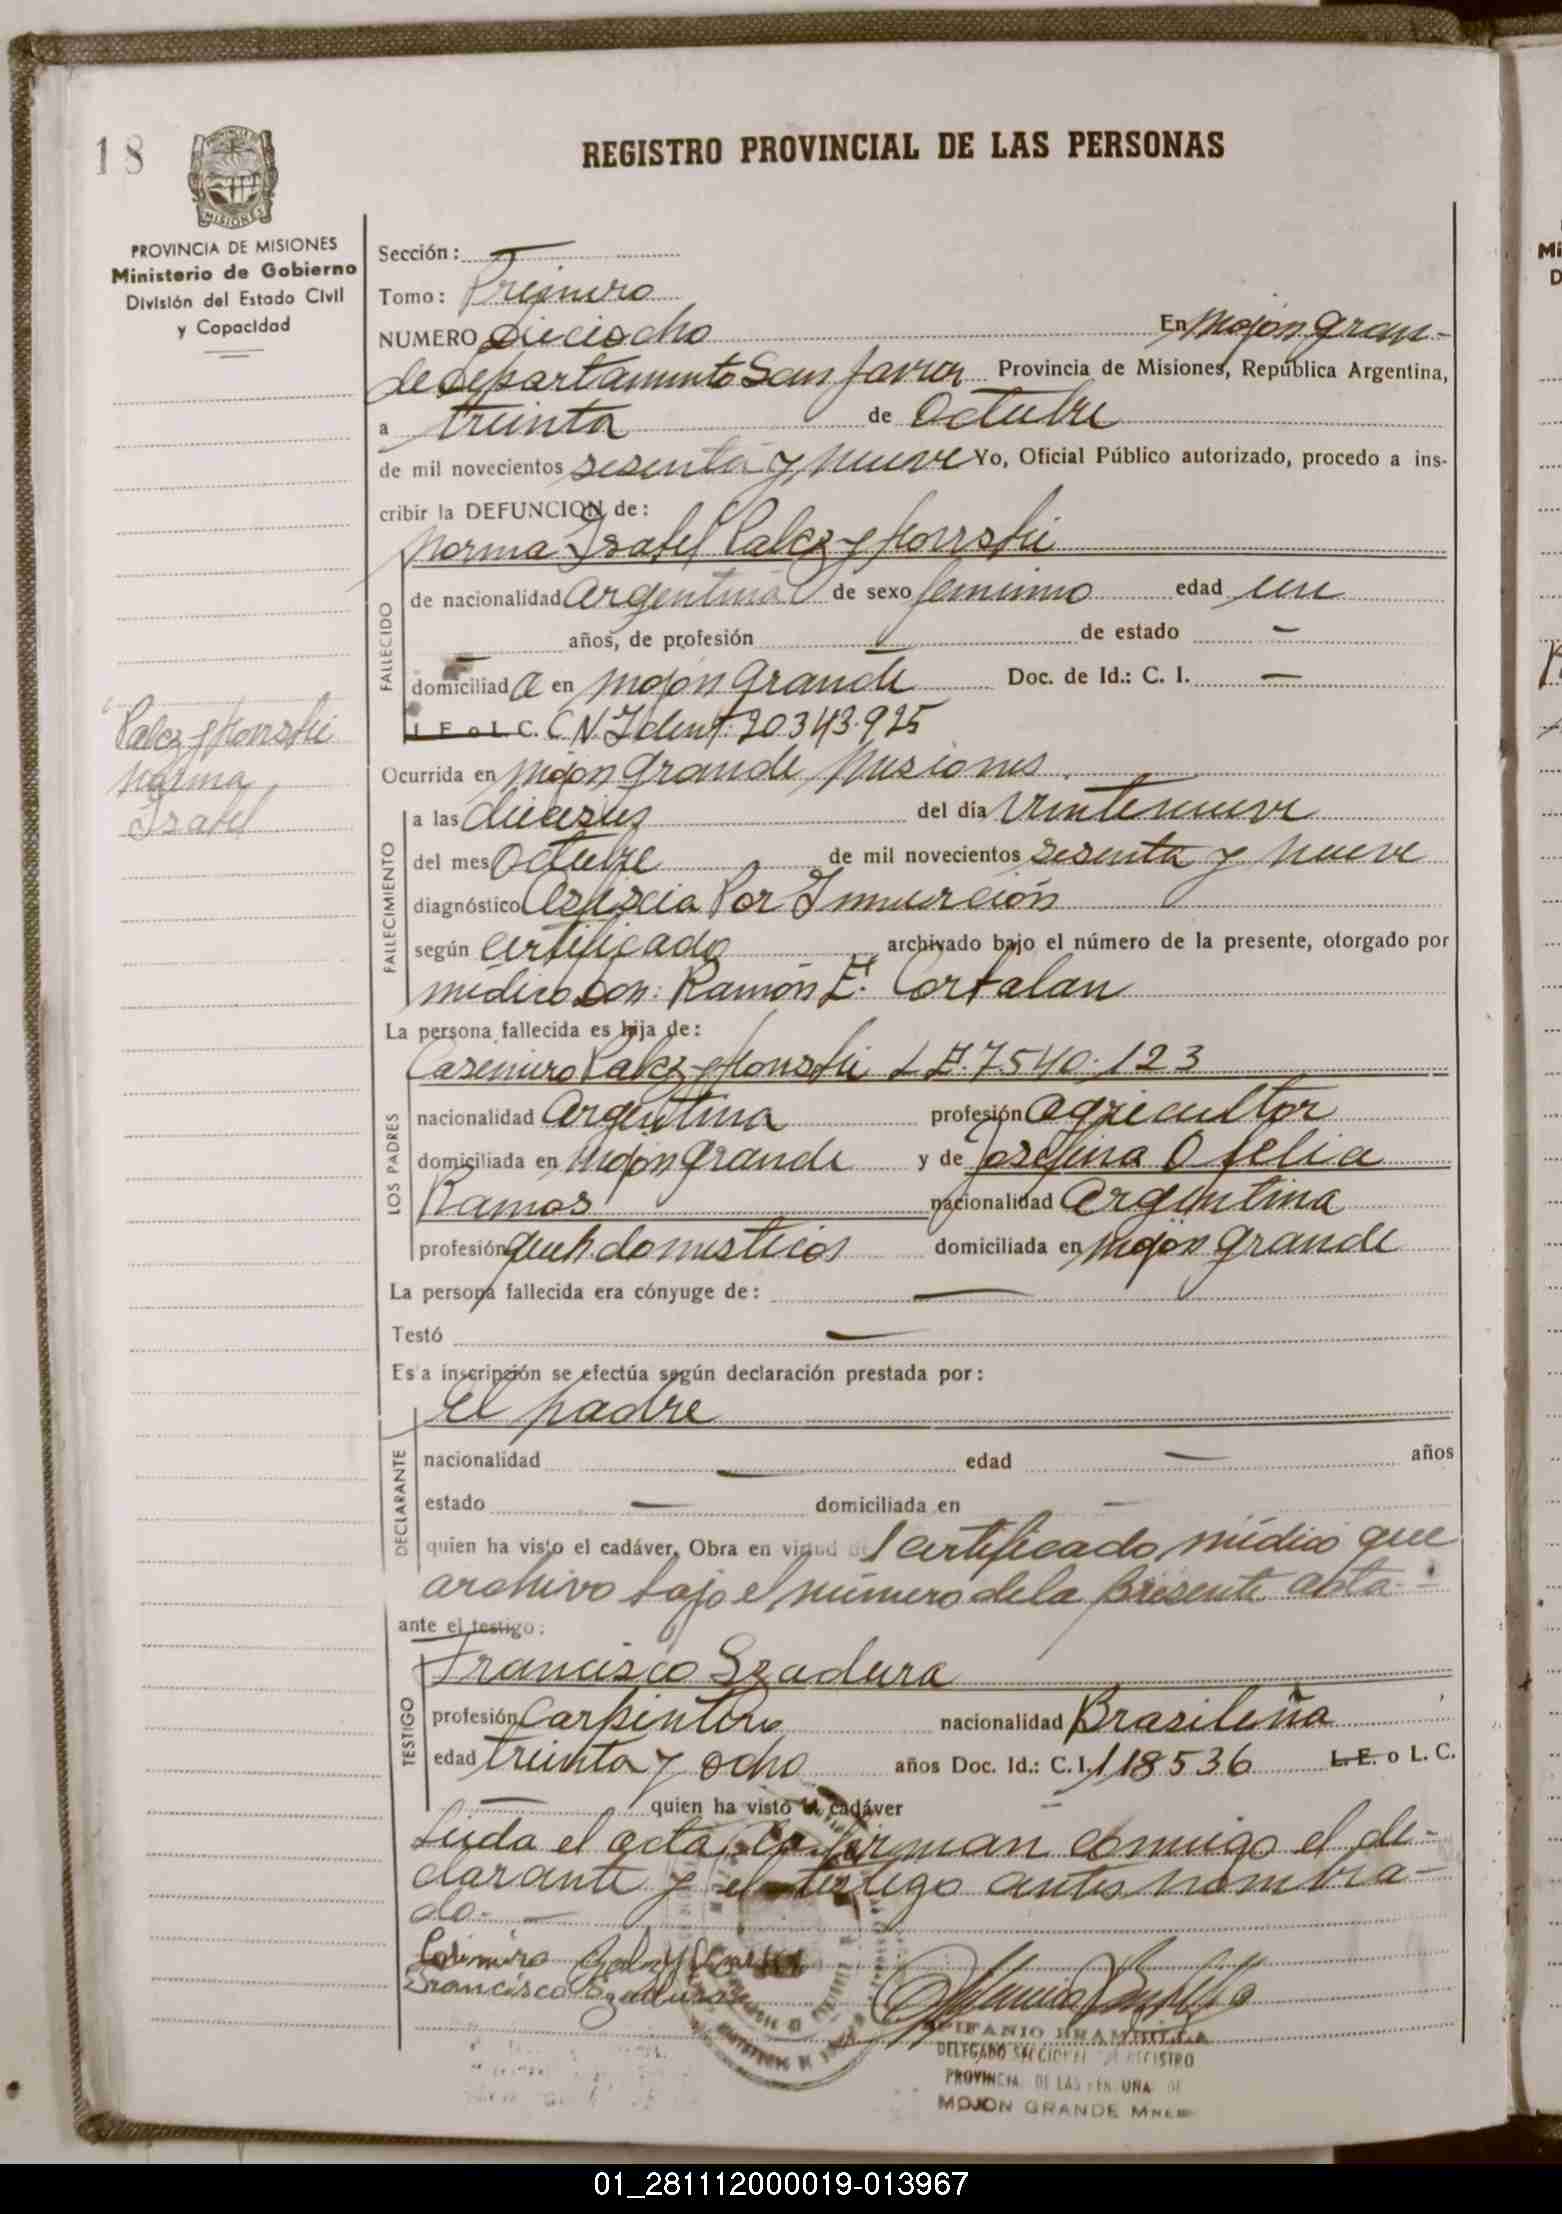 18
REGISTRO PROVINCIAL DE LAS PERSONAS
PROVINCIA DE MISIONES
Ministerio de Gobierno
División del Estado Civil
y Capacidad
Sección:
Tomo: Primero
NUMERO Dieciocho En Mojón Gran-
de departamento San Javier Provincia de Misiones, República Argentina,
a treinta de Octubre
de mil novecientos sesenta y nueve Yo, Oficial Público autorizado, procedo a ins-
cribir la DEFUNCION de:
Norma Isabel
FALLECIDO
de nacionalidad Argentina de sexo femenino edad un
años, de profesión de estado —
domiciliada en Mojón Grande Doc. de Id.: C. I. —
L E o L C. C N Ident. 20343.925
Norma
Isabel
Ocurrida en Mojon Grande Misiones.
FALLECIMIENTO
a las dieciseis del día veintenueve
del mes Octubre de mil novecientos sesenta y nueve
diagnóstico Asfixcia Por Inmerción
según certificado archivado bajo el número de la presente, otorgado por
médico Don: Ramón E.
La persona fallecida es hija de:
Casemiro L E. 7540.123
LOS PADRES
nacionalidad Argentina profesión Agricultor
domiciliada en Mojón Grande y de Josefina Ofelia
Ramos nacionalidad Argentina
profesión domesticos domiciliada en Mojón Grande
La persona fallecida era cónyuge de: —
Testó —
Es a inscripción se efectúa según declaración prestada por:
El padre
DECLARANTE
nacionalidad — edad — años
estado — domiciliada en —
quien ha visto el cadáver. Obra en virtud del certificado médico que
archivo bajo el número de la presente acta.-
ante el testigo:
Francisco Szadura
TESTIGO
profesión Carpintero nacionalidad Brasileña
edad treinta y ocho años Doc. Id.: C. I. 118536 L. E. o L. C.
— quien ha visto el cadáver
Leida el acta la firman conmigo el de-
clarante y el testigo antes nombra-
do.- —
Francisco Szadura
EPIFANIO BRAMBILLA
DELEGADO SECCIONAL REGISTRO
PROVINCIAL DE LAS
MOJON GRANDE
01_281112000019-013967